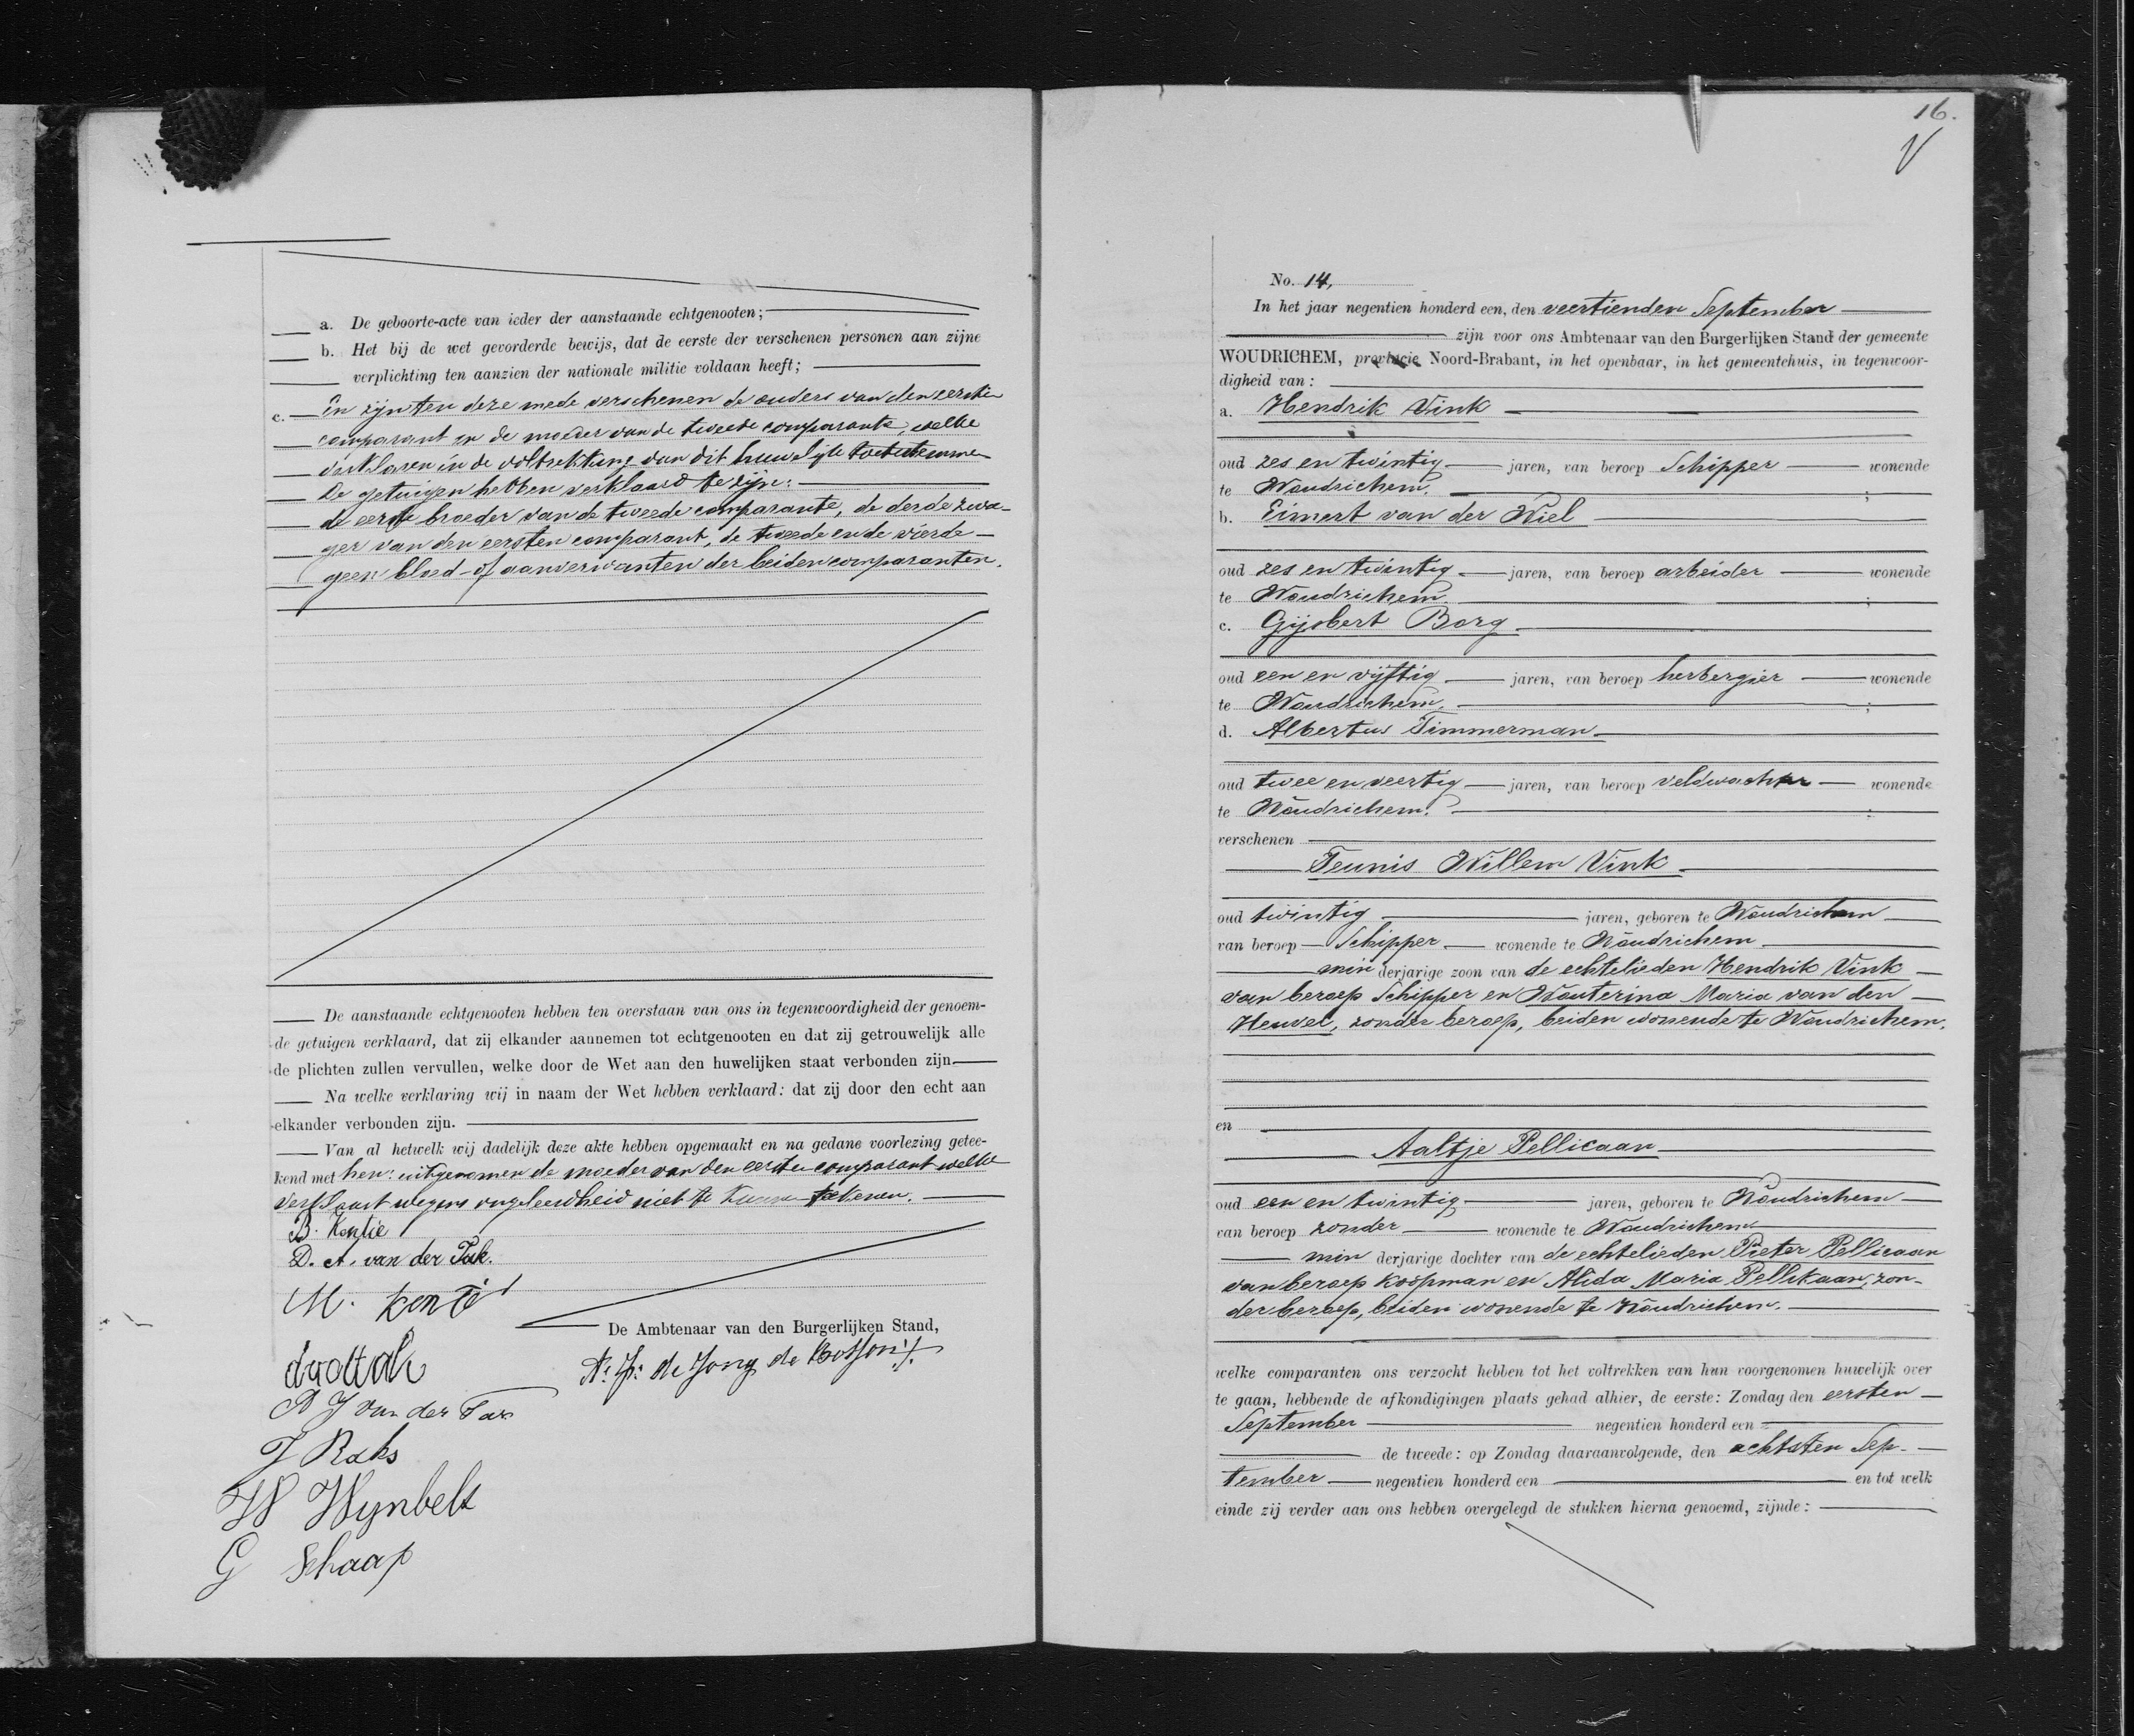 a. De geboorte-acte van ieder der aanstaande echtgenooten;
b. Het bij de wet gevorderde bewijs, dat de eerste der verschenen personen aan zijne
verplichting ten aanzien der nationale militie voldaan heeft;
c. En zijn ten deze mede verschenen de ouders van den eersten
comparant en de moeder van de tweede comparante, welke
verklaren in de voltrekking van dit huwelijk toetestemmen
De getuigen hebben verklaard te zijn:
de eerste broeder van de tweede comparante, de derde zwa-
ger van den eersten comparant, de tweede en de vierde
geen bloed- of aanverwanten der beiden comparanten.
De aanstaande echtgenooten hebben ten overstaan van ons in tegenwoordigheid der genoem-
de getuigen verklaard, dat zij elkander aannemen tot echtgenooten en dat zij getrouwelijk alle
de plichten zullen vervullen, welke door de Wet aan den huwelijken staat verbonden zijn.
Na welke verklaring wij in naam der Wet hebben verklaard: dat zij door den echt aan
elkander verbonden zijn.
Van al hetwelk wij dadelijk deze akte hebben opgemaakt en na gedane voorlezing getee-
kend met hen: uitgenomen de moeder van den eersten comparant welke
verklaart wegens ongeleerdheid niet te kunnen teekenen.
B. Kentie
D. A. van der Tak.
M. Kentie
De Ambtenaar van den Burgerlijken Stand,
de Jong de
van der
J Raks
W Wynbelt
G Schaap
16.
V
No. 14,
In het jaar negentien honderd een, den veertienden September
zijn voor ons Ambtenaar van den Burgerlijken Stand der gemeente
WOUDRICHEM, provincie Noord-Brabant, in het openbaar, in het gemeentehuis, in tegenwoor-
digheid van:
a. Hendrik Vink
oud zes en twintig jaren, van beroep Schipper wonende
te Woudrichem. ;
b. Eimert van der Wiel
oud zes en twintig jaren, van beroep arbeider wonende
te Woudrichem. ;
c. Gijsbert Borg
oud een en vijftig jaren, van beroep herbergier wonende
te Woudrichem. ;
d. Albertus Timmerman
oud twee en veertig jaren, van beroep veldwachter wonende
te Woudrichem. ;
verschenen
Teunis Willem Vink
oud twintig jaren, geboren te Woudrichem
van beroep Schipper wonende te Woudrichem
minderjarige zoon van de echtelieden Hendrik Vink
van beroep Schipper en Wouterina Maria van den
Heuvel, zonder beroep, beiden wonende te Woudrichem.
en
Aaltje Pellicaan
oud een en twintig jaren, geboren te Woudrichem
van beroep zonder wonende te Woudrichem
minderjarige dochter van de echtelieden Pieter Pellicaan
van beroep Koopman en Alida Maria Pellikaan, zon-
der beroep, beiden wonende te Woudrichem.
welke comparanten ons verzocht hebben tot het voltrekken van hun voorgenomen huwelijk over
te gaan, hebbende de afkondigingen plaats gehad alhier, de eerste: Zondag den eersten
September negentien honderd een
de tweede: op Zondag daaraanvolgende, den achtsten Sep-
tember negentien honderd een en tot welk
einde zij verder aan ons hebben overgelegd de stukken hierna genoemd, zijnde: